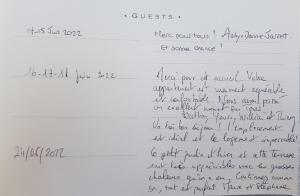 • GUESTS •
7-15 Juin 2022
Merci pour tous !
Et bonne chance !
16-17-18 Juin 2022
Merci pour cet accueil. Votre
appartement est vraiment agréable
et confortable. Nous avons passé
un excellent moment
William et Thierry
Un très bon séjour ! L'emplacement
est idéal et le logement impeccable!
24/06/2022
Le petit jardin d'hiver et cette terrasse
sont très appréciables avec les grosses
chaleurs qu'on a eu. Continuez comme
ça, tout est parfait. Stéphane